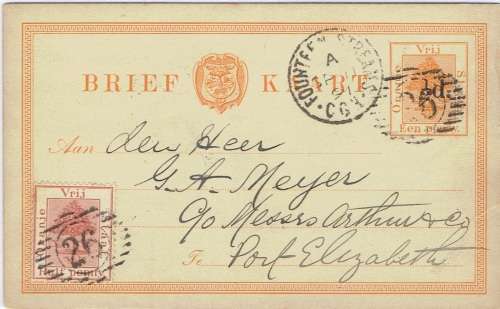 BRIEF KAART
FOUNTEEN STREAMS
A
CGH
Vrij
Oranje
½d.
Een penny.
Aan den Heer
G. A. Meyer
c/o Messrs Arthur & Co
Te Port Elizabeth
Vrij
Oranje
Staat
Half penny
26